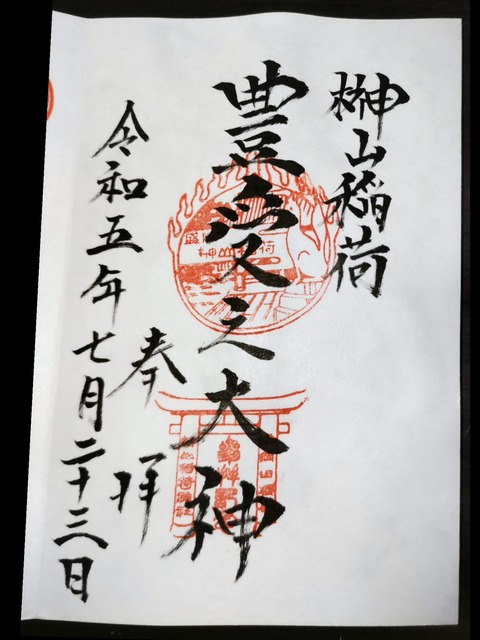 榊山稲荷
豊受之大神
奉拝
令和五年七月二十三日
榊山稲荷